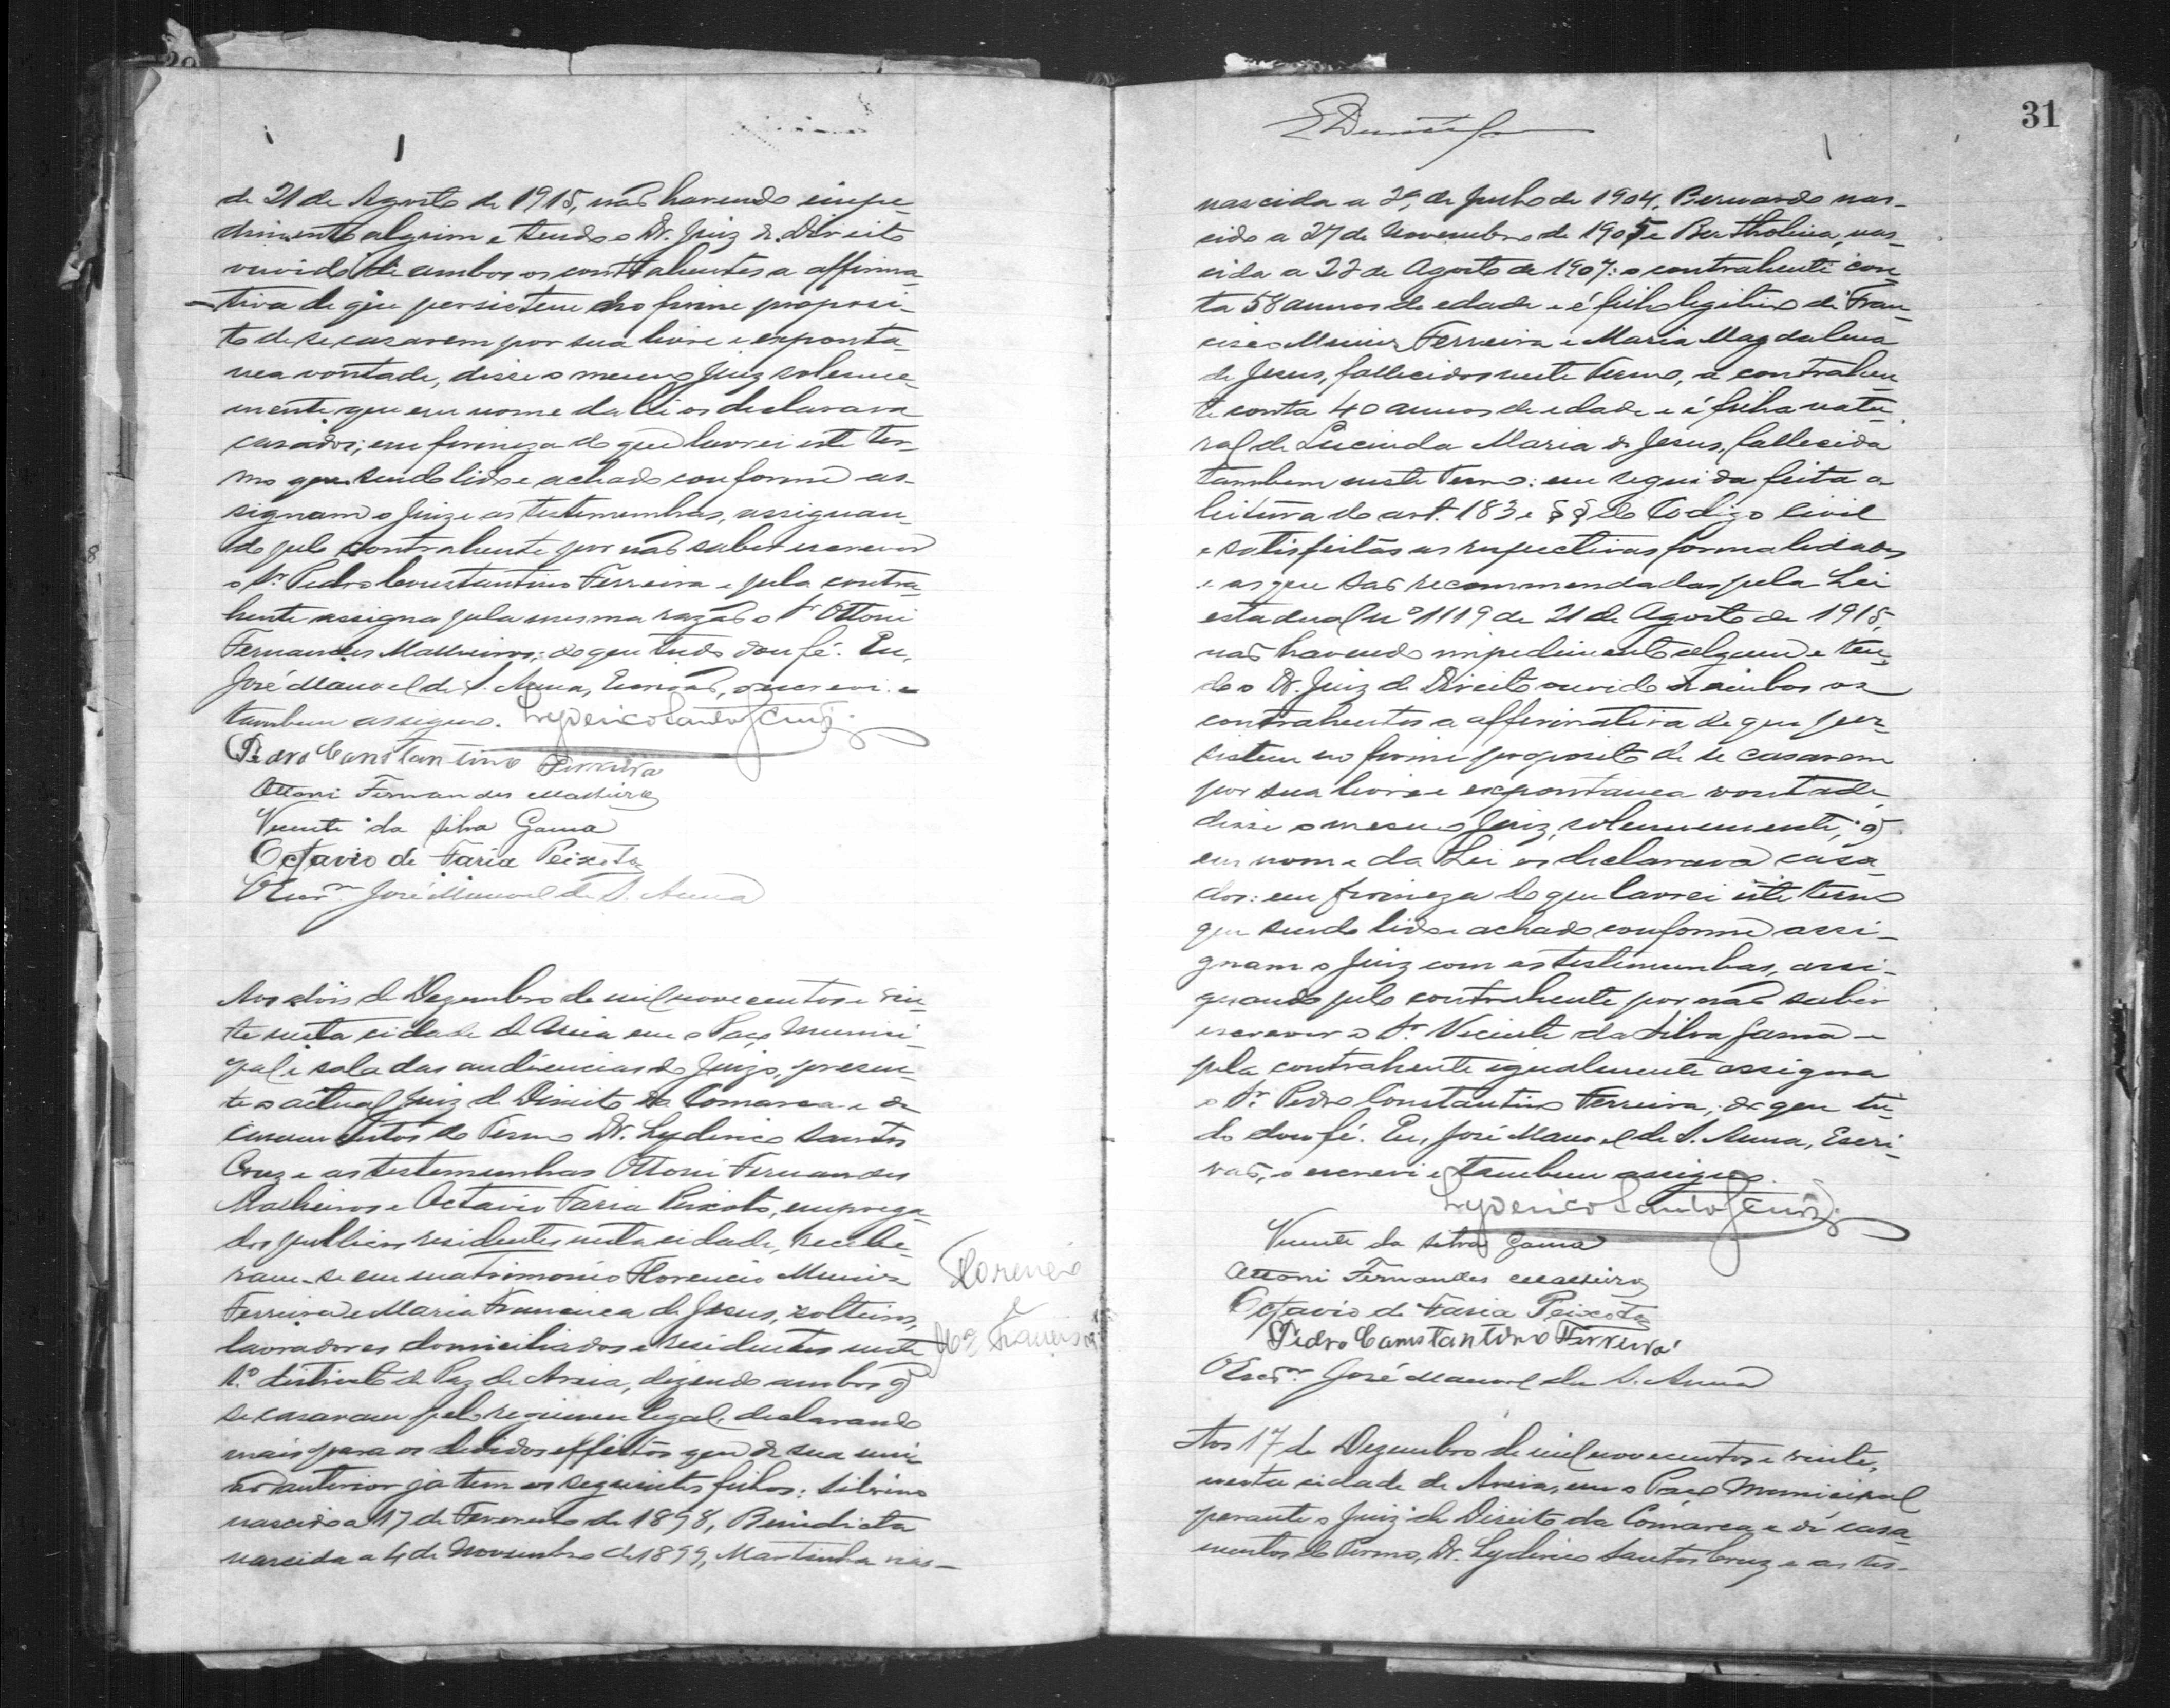 de 21 de Agosto de 1915, não havendo impe-
dimento algum e tendo o Dr. Juiz de Direito
ouvido de ambos os contrahentes a affirma-
tiva de que persistem no firme proposi-
to de se casarem por sua livre e exponta-
nea vontade, disse o mesmo Juiz solemne-
mente que em nome da Lei os declarava
casados; em firmeza do que lavrei este ter-
mo que sendo lido e achado conforme as-
signam o Juiz e as testemunhas, assignan-
do pelo contrahente por não saber escrever
o Sr. Pedro Constantino Ferreira e pela contra-
hente assigna pela mesma razão o Sr. Ottoni
Fernandes Malheiros; do que tudo dou fé. Eu,
José Manoel de S. Anna, Escrivão, o escrevi e
tambem assigno. Lyderico Santos Cruz.
Pedro Canstantino Ferreira
Ottoni Fernandes Malheiros
Vicente da Silva Gama
Octavio de Faria Peixoto
O Escr.am José Manoel de S. Anna
Aos dois de Dezembro de mil novecentos e vin-
te nesta cidade de Areia em o Paço Munici-
pal e sala das audiencias do Juizo, presen-
te o actual Juiz de Direito da Comarca e de
casamentos do Termo Dr. Lyderico Santos
Cruz e as testemunhas Ottoni Fernandes
Malheiros e Octavio Faria Peixoto, emprega-
dos publicos residentes nesta cidade, recebe-
ram-se em matrimonio Florencio Muniz
Ferreira e Maria Francisca de Jesus, solteiros,
lavradores domiciliados e residentes neste
1.º districto de Paz de Areia, dizendo ambos q̃
se casavam pelo regimen legal, declarando
mais para os devidos effeitos que de sua uni-
ão anterior já tem os seguintes filhos: Silvino
nascido a 17 de Fevereiro de 1898, Benedicta
nascida a 4 de Novembro de 1899, Martinha nas-
Florencio
e
M.ª Francisca
31
nascida a 29 de Junho de 1904, Bernardo nas-
cido a 27 de Novembro de 1905 e Bertholina, nas-
cida a 22 de Agosto de 1907: o contrahente con-
ta 58 annos de edade e é filho legitimo de Fran-
cisco Muniz Ferreira e Maria Magdalena
de Jesus, fallecidos neste Termo, a contrahen-
te conta 40 annos de edade e é filha natu-
ral de Lucinda Maria de Jesus, fallecida
tambem neste Termo: em seguida feita a
leitura do art. 183 e §§ do Codigo Civil
e satisfeitas as respectivas formalidades
e as que são recommendadas pela Lei
estadual nº 1119 de 21 de Agosto de 1915,
não havendo impedimento algum e ten-
do o Dr. Juiz de Direito ouvido de ambos os
contrahentes a affirmativa de que per-
sistem no firme proposito de se casarem
por sua livre e expontanea vontade,
disse o mesmo Juiz, solemnemente, q̃
em nome da Lei os declarava casa-
dos: em firmeza do que lavrei este termo
que sendo lido e achado conforme assi-
gnam o Juiz com as testemunhas, assi-
gnando pelo contrahente por não saber
escrever o Sr. Vicente da Silva Gama e
pela contrahente igualmente assigna
o Sr. Pedro Constantino Ferreira; do que tu-
do dou fé. Eu, José Manoel de S. Anna, Escri-
vão, o escrevi e tambem assigno.
Lyderico Santos Cruz.
Vicente da Silva Gama
Ottoni Fernandes Malheiros
Octavio de Faria Peixoto
Pedro Canstantino Ferreira
O Escr.am José Manoel de S. Anna
Aos 17 de Dezembro de mil novecentos e vinte,
nesta cidade de Areia, em o Paço Municipal
perante o Juiz de Direito da Comarca e de casa-
mentos do Termo, Dr. Lyderico Santos Cruz e as tes-